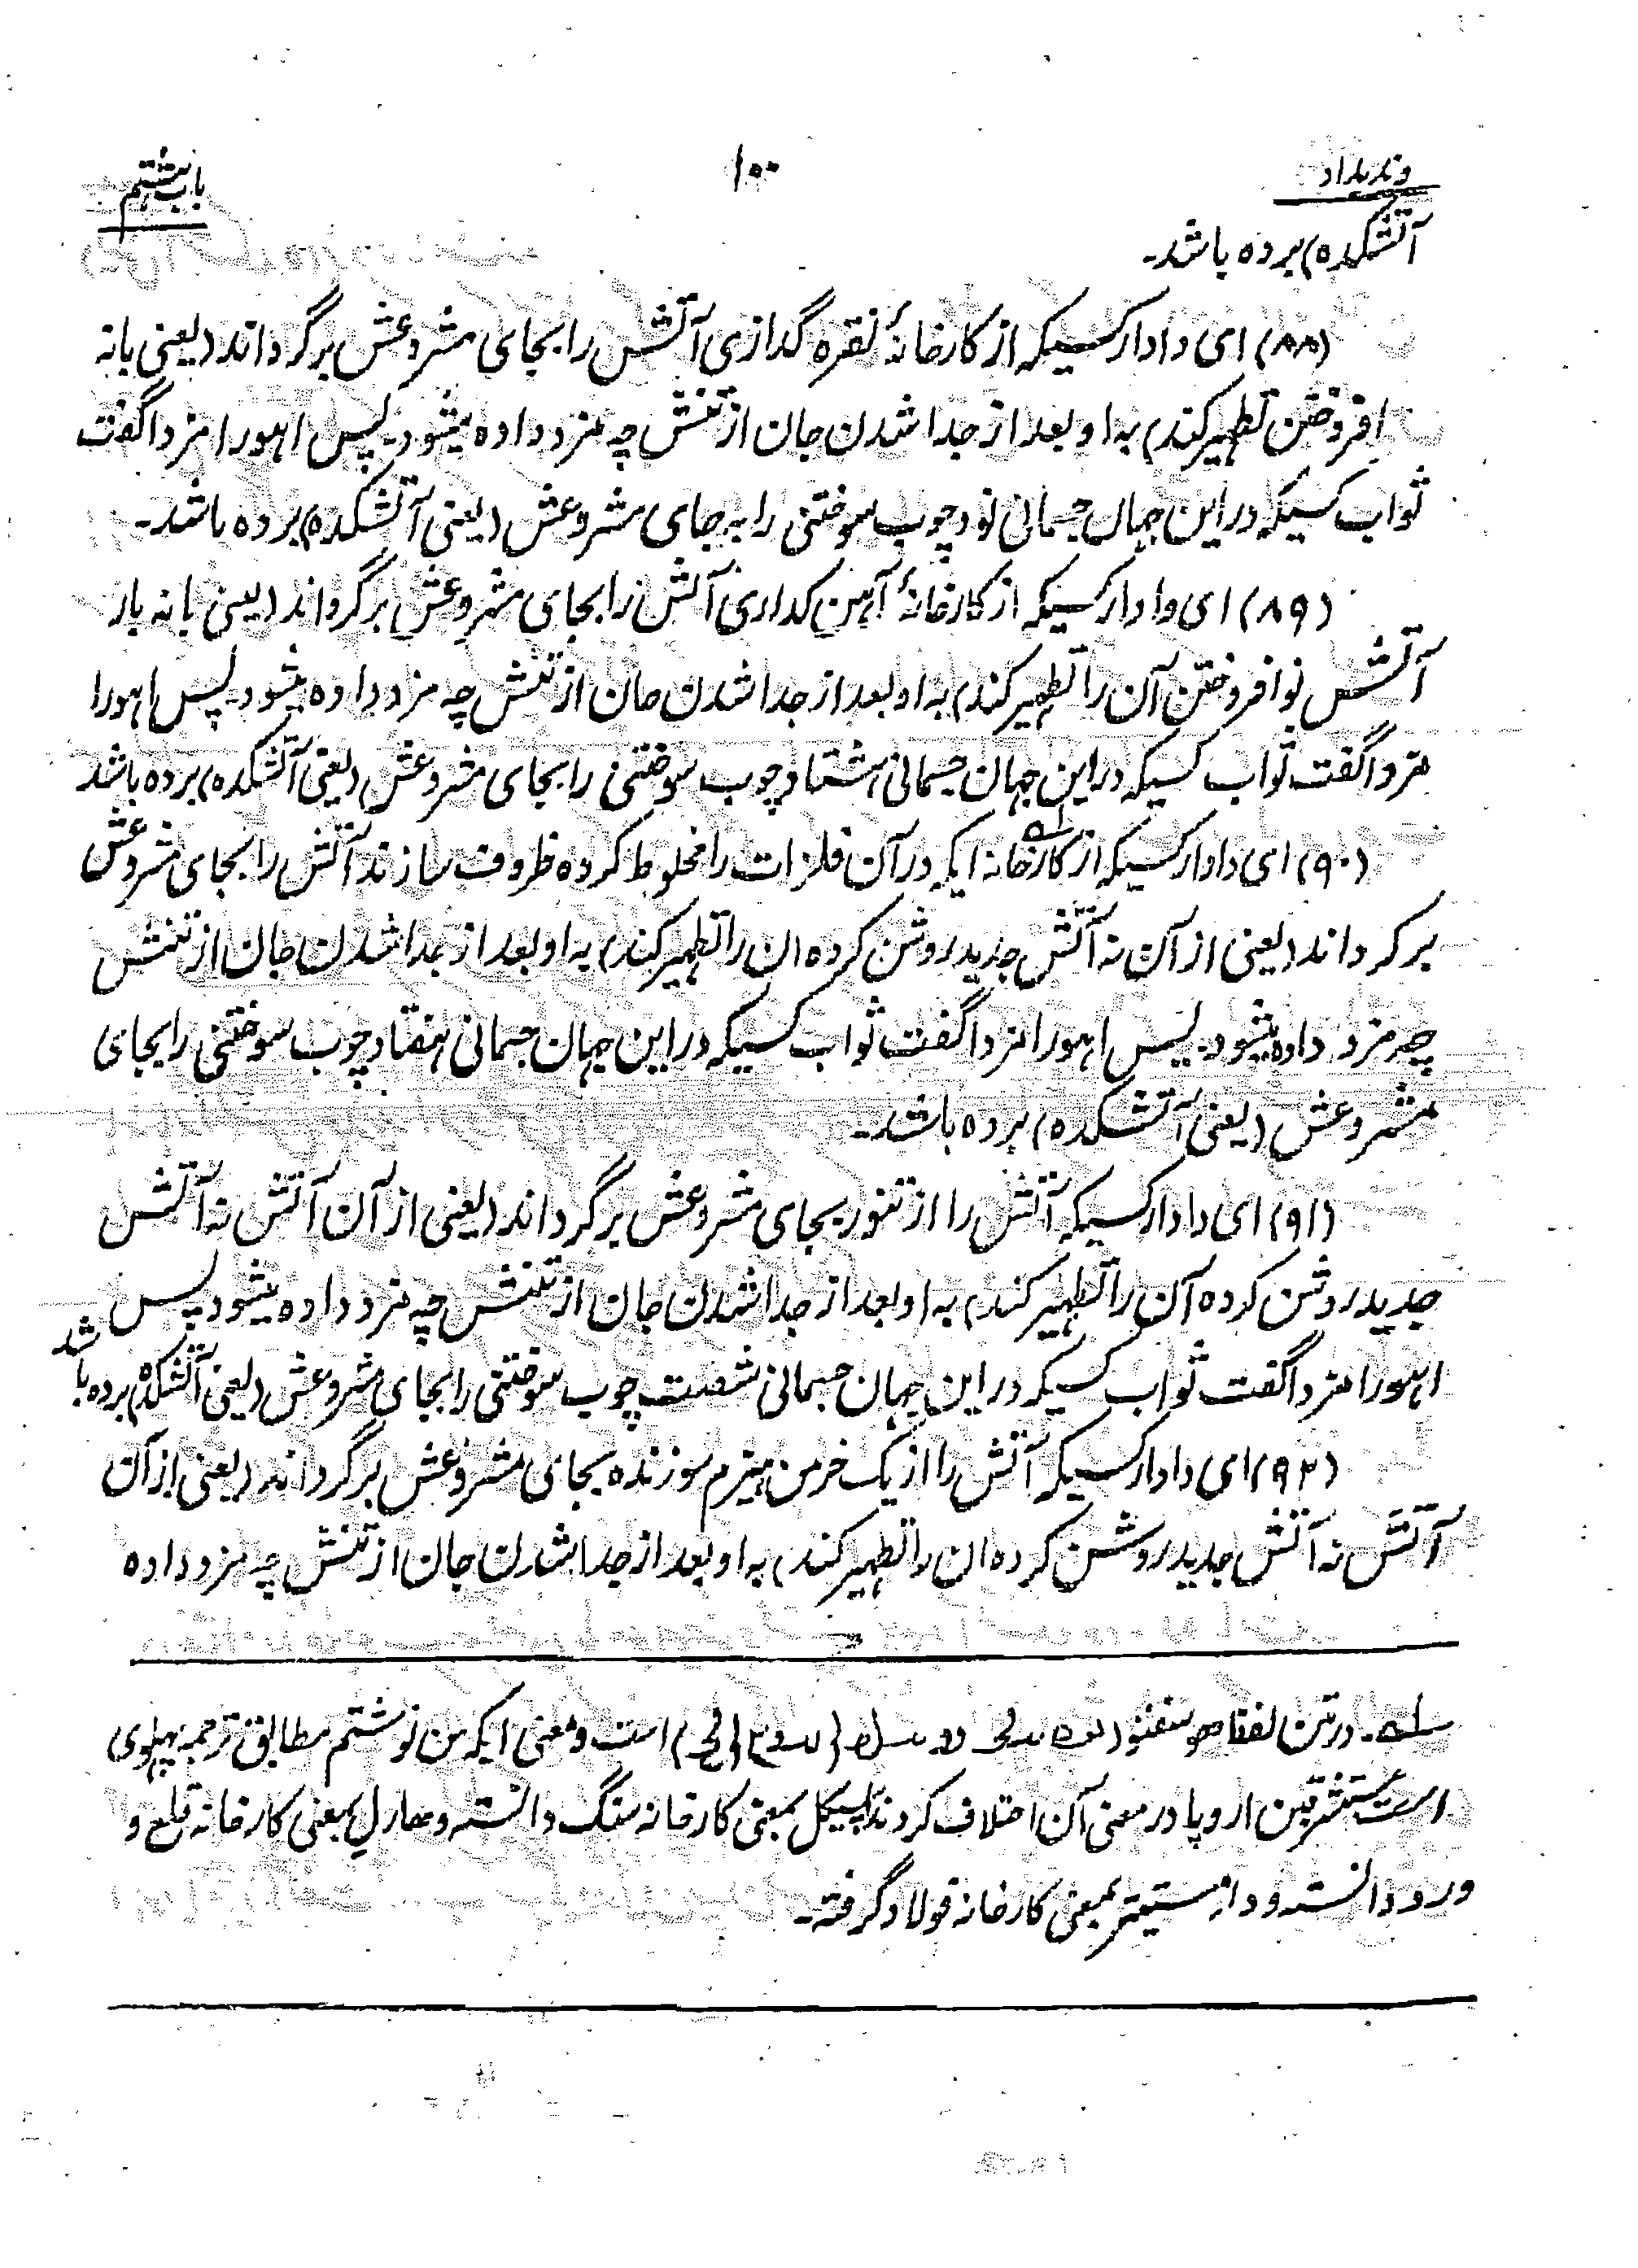 وندیداد
۱۰۰
باب هشتم
آتشکده) برده باشد-
(۸۸) ای دادار کسیکه از کارخانهٔ نقره گدازی آتش را بجای مشروعش برگرداند (یعنی بانه
افروختن تطهیر کند) به او بعد از جدا شدن جان از تنش چه مزد داده میشود- پس اهورا مزدا گفت
ثواب کسیکه در این جهان جسمانی نود چوب سوختنی را به جای مشروعش (یعنی آتشکده) برده باشد-
(۸۹) ای دادار کسیکه از کارخانهٔ آهن گدازی آتش را بجای مشروعش برگرداند (یعنی با نه بار
آتش نو افروختن آن را تطهیر کند) به او بعد از جدا شدن جان از تنش چه مزد داده میشود- پس اهورا
مزدا گفت ثواب کسیکه در این جهان جسمانی هشتاد چوب سوختنی را بجای مشروعش (یعنی آتشکده) برده باشد
(۹۰) ای دادار کسیکه از کارخانه ایکه در آن فلزات را مخلوط کرده ظروف سازند آتش را بجای مشروعش
برگرداند (یعنی از آن نه آتش جدید روشن کرده ان را تطهیر کند) به او بعد از جدا شدن جان از تنش
چه مزد داده میشود- پس اهورا مزدا گفت ثواب کسیکه در این جهان جسمانی هفتاد چوب سوختنی را بجای
مشروعش (یعنی آتشکده) برده باشد-
(۹۱) ای دادار کسیکه آتش را از تنور بجای مشروعش برگرداند (یعنی از آن آتش نه آتش
جدید روشن کرده آن را تطهیر کند) به او بعد از جدا شدن جان از تنش چه مزد داده میشود پس
اهورا مزدا گفت ثواب کسیکه در این جهان جسمانی شصت چوب سوختنی را بجای مشروعش (یعنی آتشکده) برده باشد
(۹۲) ای دادار کسیکه آتش را از یک خرمن هیزم سوزنده بجای مشروعش برگرداند (یعنی از آن
آتش نه آتش جدید روشن کرده ان را تطهیر کند) به او بعد از جدا شدن جان از تنش چه مزد داده
در متن لفظ است و معنی ایکه من نوشتم مطابق ترجمه پهلوی
است مستشرقین اروپا در معنی آن اختلاف کردند اسپیگل بمعنی کارخانه سنگ دانسته و هارلی بمعنی کارخانه قلع و
ورد دانسته و دارمستیتر بمعنی کارخانه فولاد گرفته-